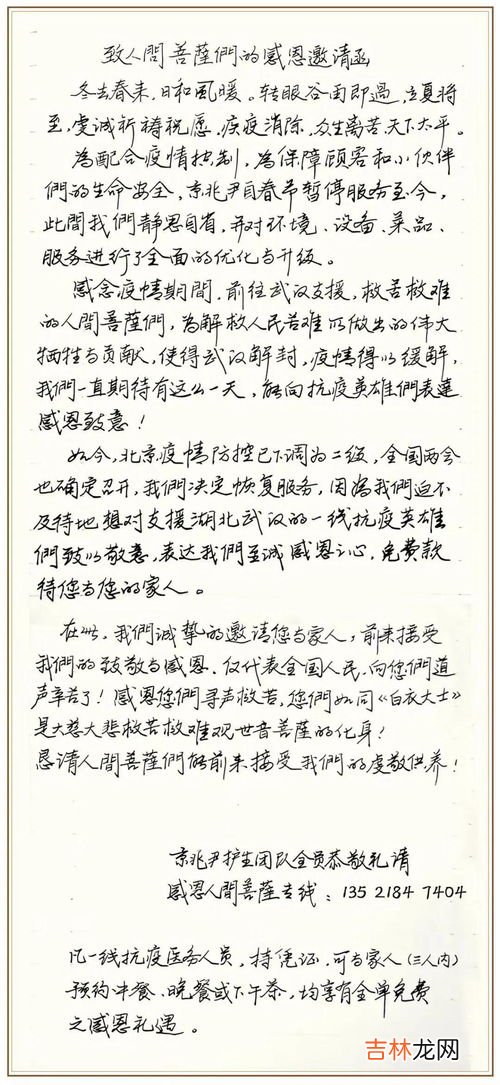 致人間菩薩們的感恩邀请函
冬去春来，日和風暖。转眼谷雨即過，立夏将
至，虔诚祈禱祝愿，疾疫消除，众生离苦天下太平。
為配合疫情控制，為保障顾客和小伙伴
們的生命安全，京兆尹自春节暂停服务至今，
此間我們静思自省，并对环境、设备、菜品、
服务进行了全面的优化与升级。
感念疫情期間，前往武汉支援，救苦救难
的人間菩薩們，为解救人民苦难所做出的伟大
牺牲与贡献，使得武汉解封，疫情得以缓解，
我們一直期待有这么一天，能向抗疫英雄們表達
感恩致意！
如今，北京疫情防控已下调为二级，全国两会
也确定召开，我們决定恢复服务，因為我們迫不
及待地想对支援湖北武汉的一线抗疫英雄
們致以敬意，表达我們至诚感恩之心，免费款
待您与您的家人。
在此，我們诚挚的邀请您与家人，前来接受
我們的致敬与感恩。仅代表全国人民，向您們道
声辛苦了！感恩您們寻声救苦，您們如同《白衣大士》
是大慈大悲救苦救难观世音菩薩的化身！
恳请人間菩薩們能前来接受我們的虔敬供养！
京兆尹护生团队全员恭敬礼请
感恩人間菩薩专线：135 2184 7404
凡一线抗疫医务人员，持凭证，可与家人（三人内）
预约午餐、晚餐或下午茶，均享有全单免费
之感恩礼遇。
吉林龙网